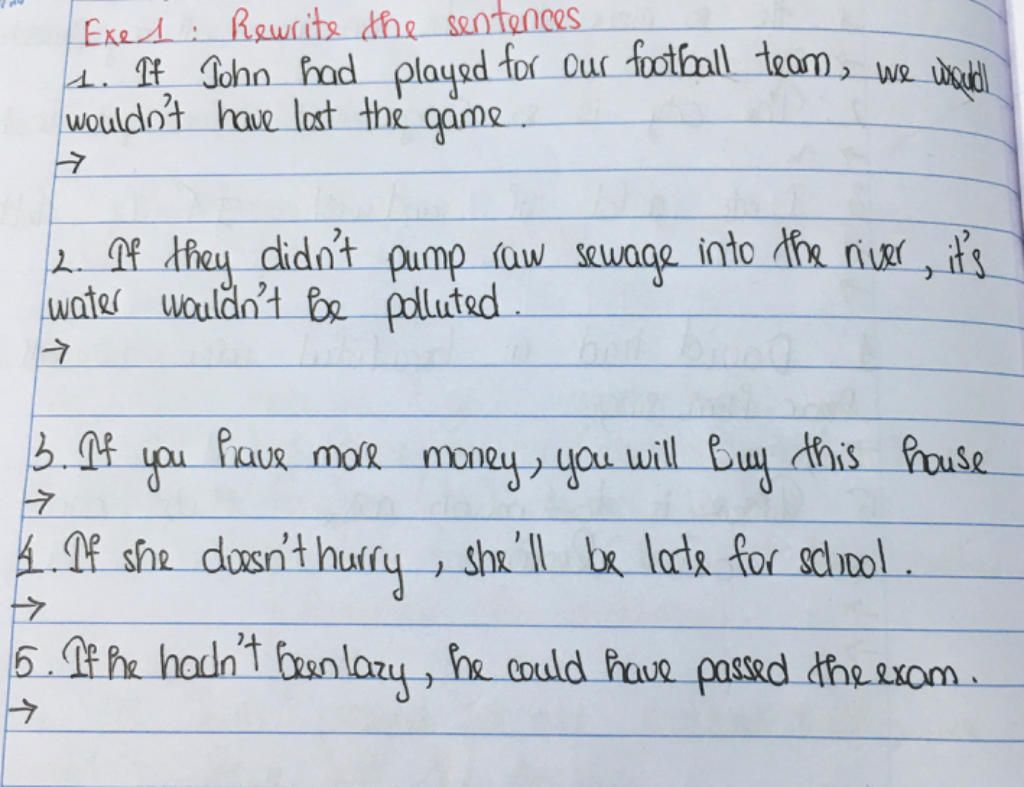 Exe 1 : Rewrite the sentences
1. If John had played for our football team, we would
wouldn't have lost the game.
→
2. If they didn't pump raw sewage into the river, it's
water wouldn't be polluted.
→
3. If you have more money, you will buy this house
→
4. If she doesn't hurry, she'll be late for school.
→
5. If he hadn't been lazy, he could have passed the exam.
→